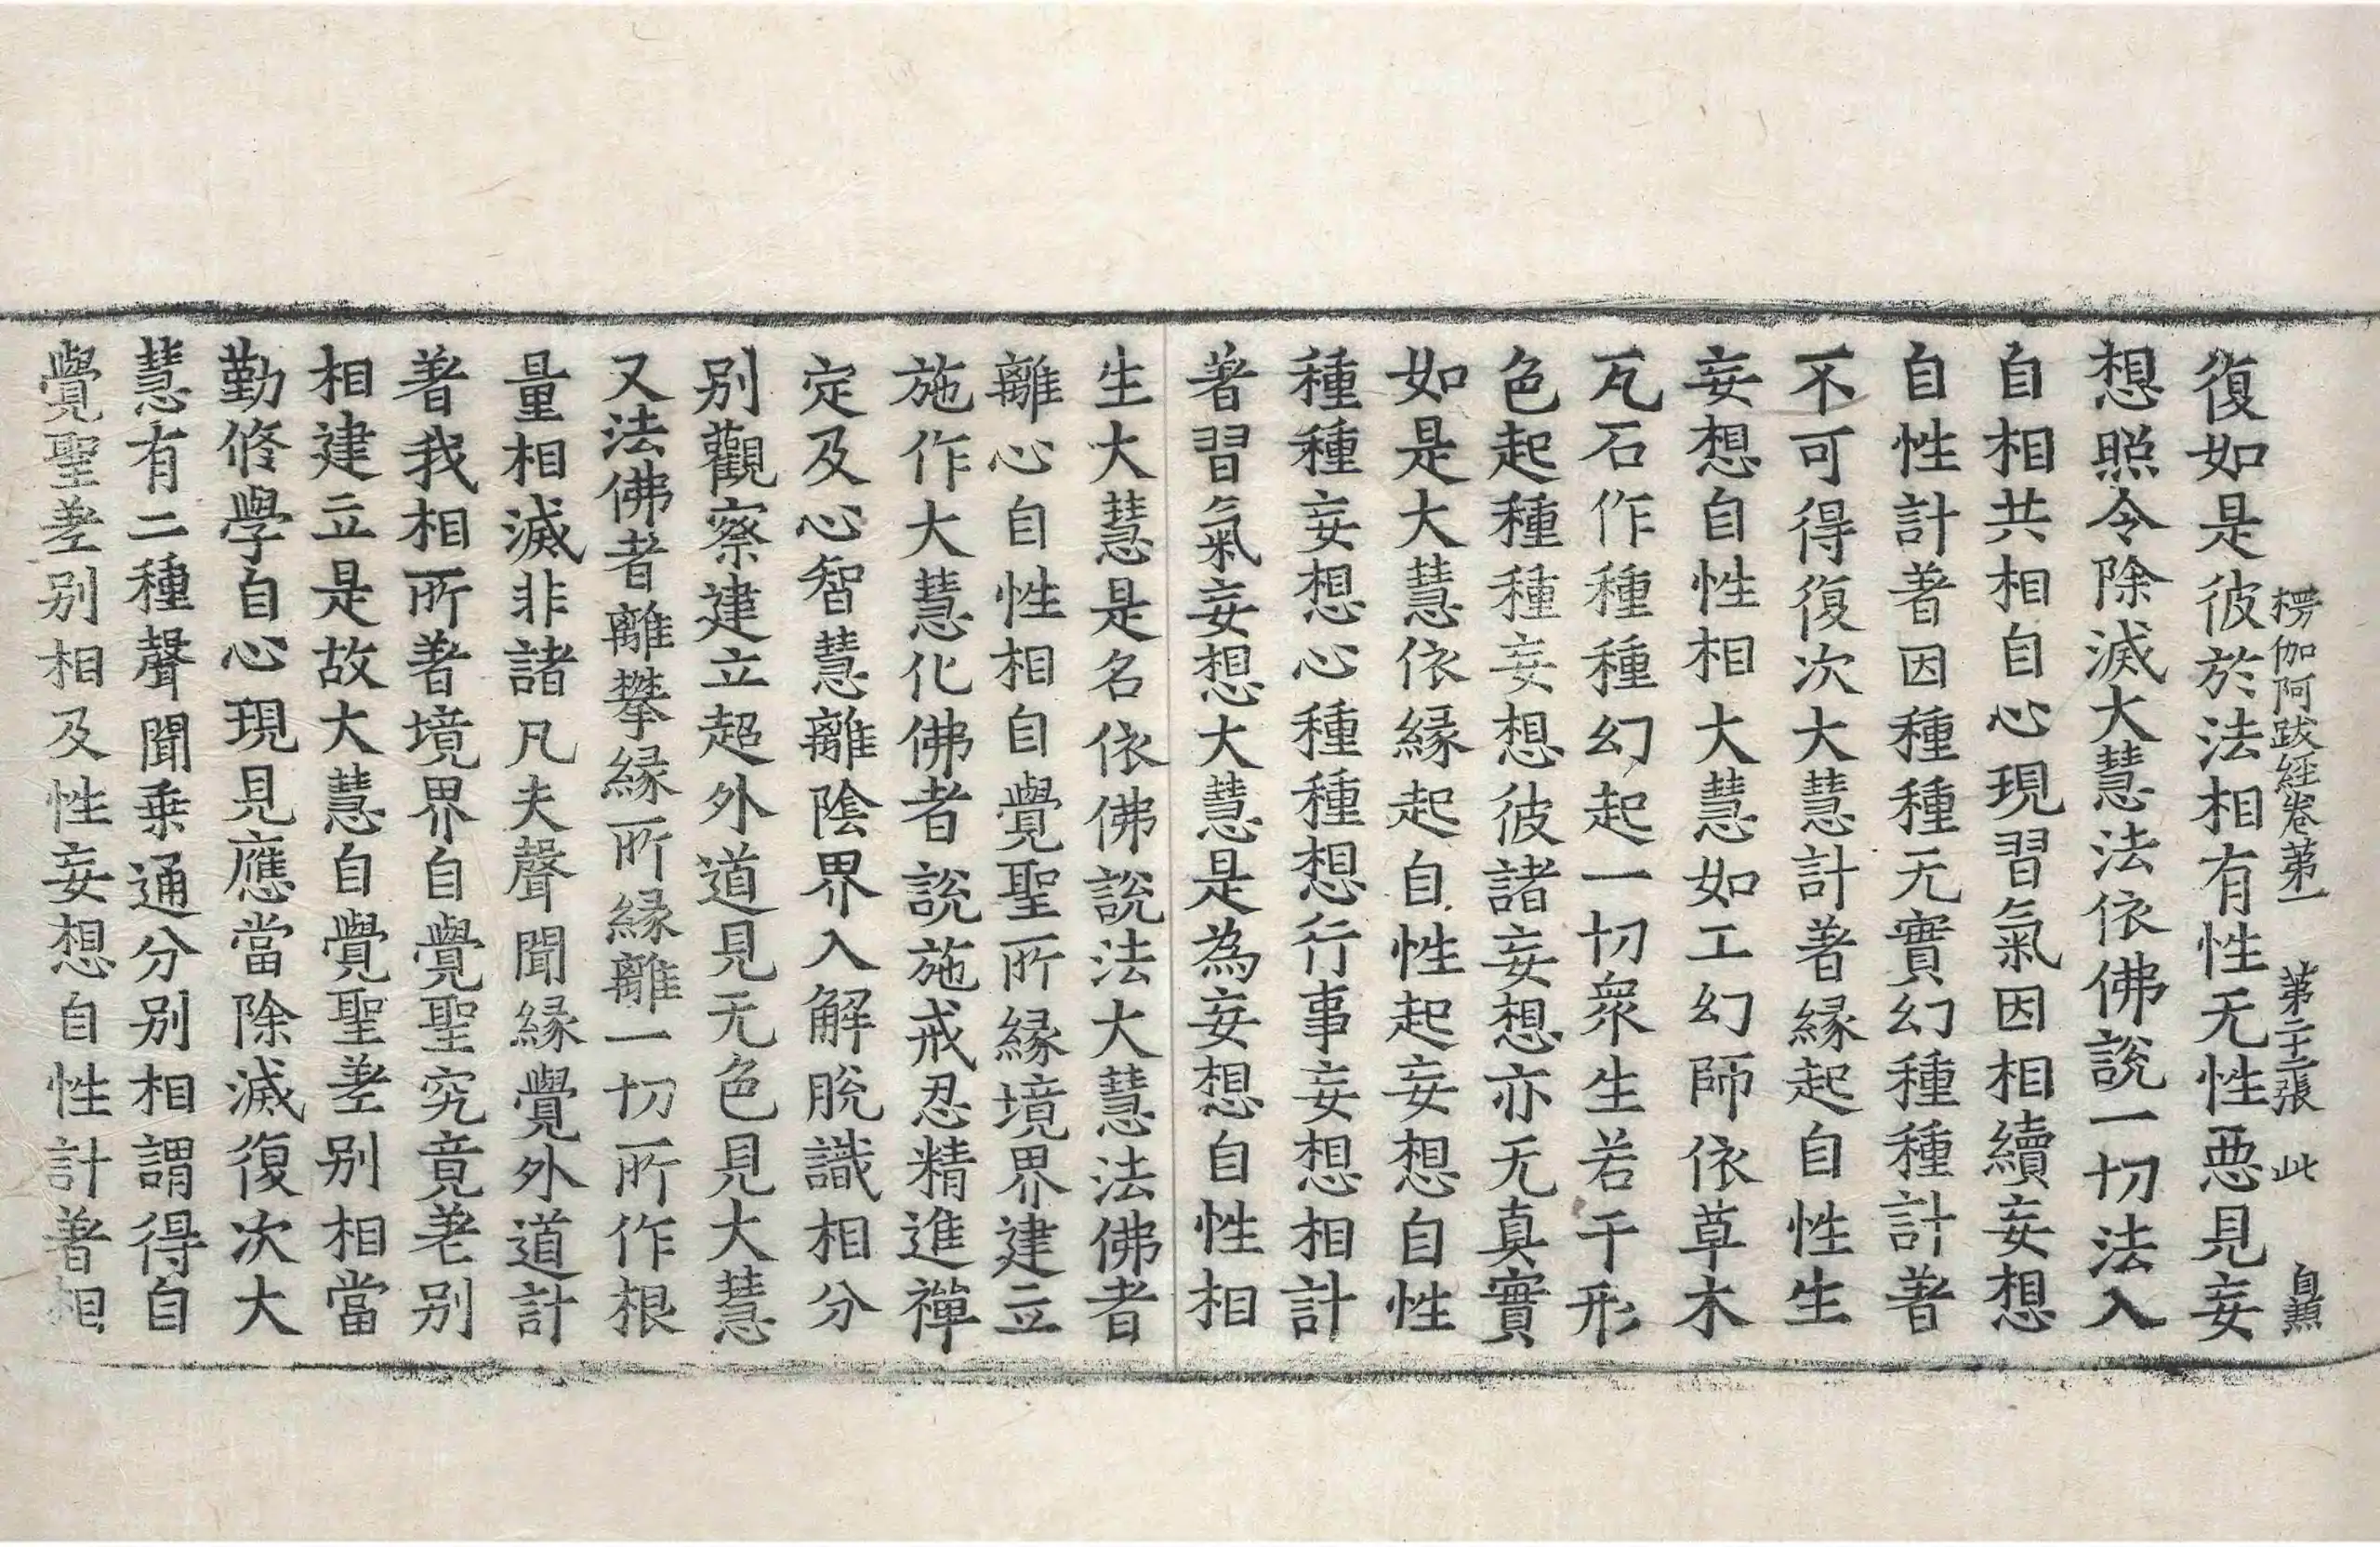 楞伽阿跋經卷第一 第二十二張 此 自𤋱
復如是彼於法相有性无性惡見妄
想照令除滅大慧法依佛說一切法入
自相共相自心現習氣因相續妄想
自性計著因種種无實幻種種計著
不可得復次大慧計著緣起自性生
妄想自性相大慧如工幻師依草木
瓦石作種種幻起一切衆生若干形
色起種種妄想彼諸妄想亦无真實
如是大慧依緣起自性起妄想自性
種種妄想心種種想行事妄想相計
著習氣妄想大慧是為妄想自性相
生大慧是名依佛說法大慧法佛者
離心自性相自覺聖所緣境界建立
施作大慧化佛者說施戒忍精進禪
定及心智慧離陰界入解脫識相分
别觀察建立超外道見无色見大慧
又法佛者離攀緣所緣離一切所作根
量相滅非諸凡夫聲聞緣覺外道計
著我相所著境界自覺聖究竟差别
相建立是故大慧自覺聖差别相當
勤修學自心現見應當除滅復次大
慧有二種聲聞乗通分别相謂得自
覺聖差别相及性妄想自性計著相